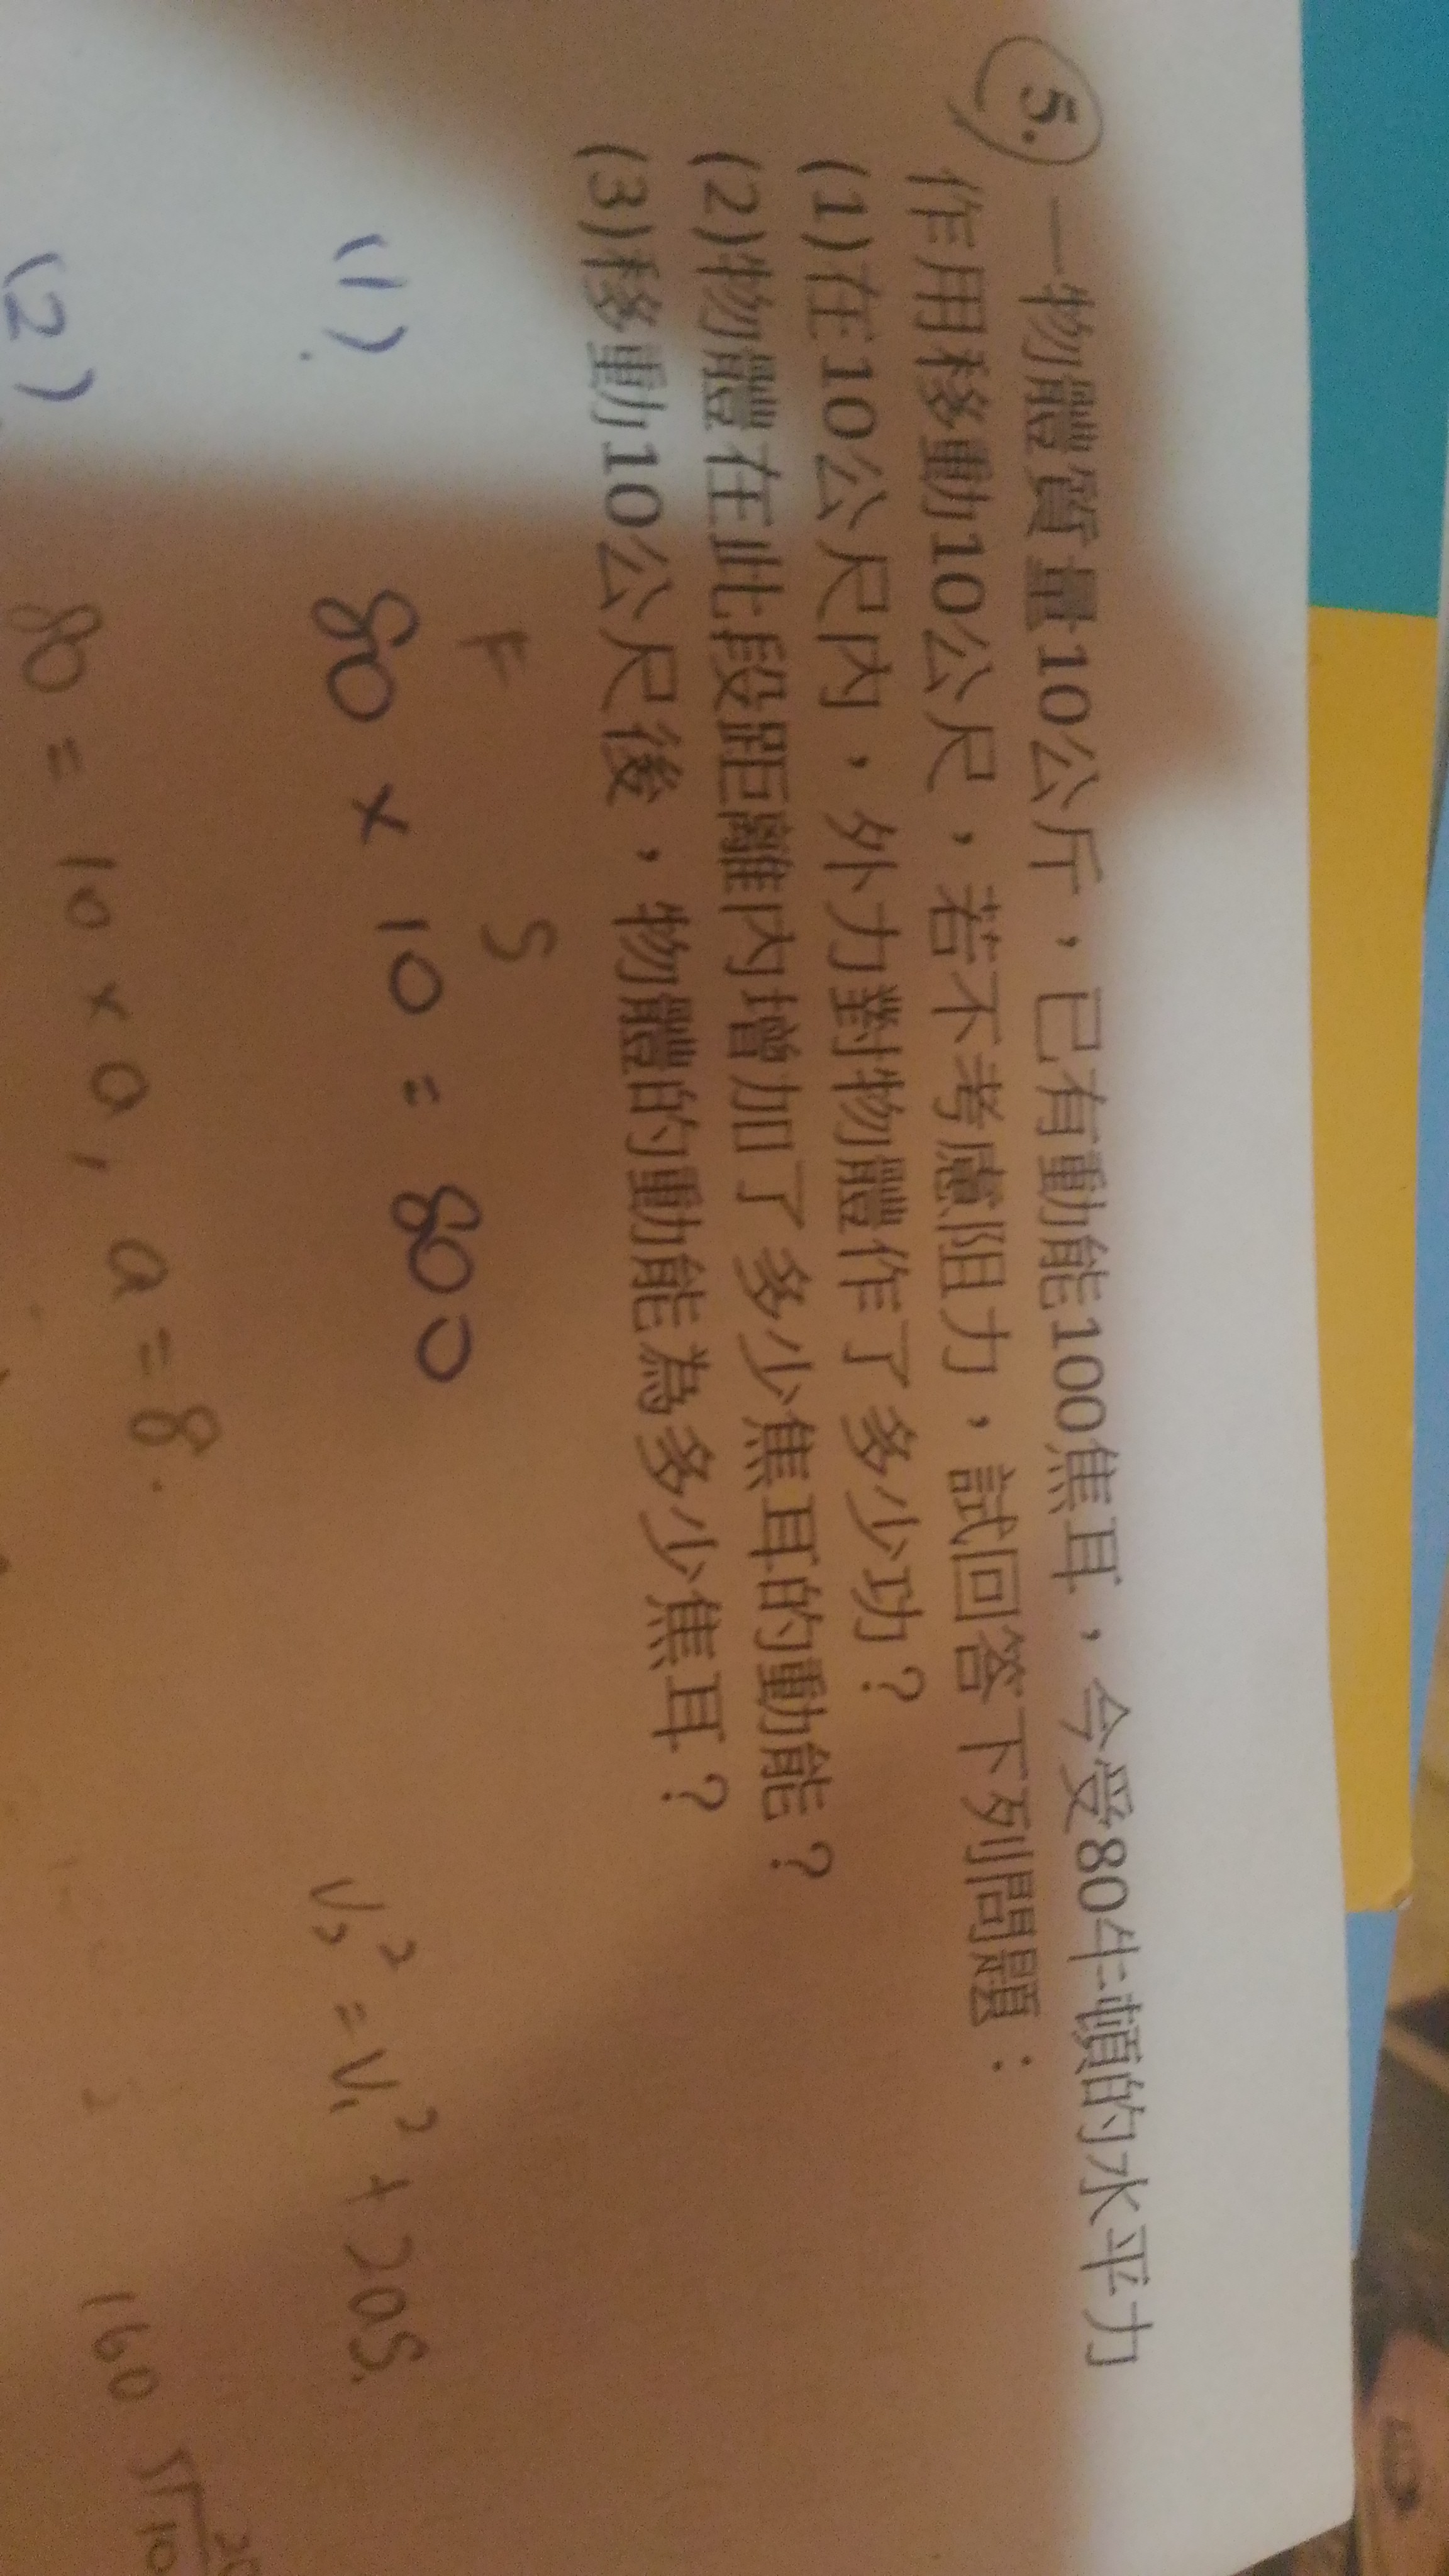 5. 一物體質量10公斤，已有動能100焦耳，今受80牛頓的水平力
作用移動10公尺，若不考慮阻力，試回答下列問題：
(1)在10公尺內，外力對物體作了多少功？
(2)物體在此段距離內增加了多少焦耳的動能？
(3)移動10公尺後，物體的動能為多少焦耳？
F S
(1). 80 × 10 = 800
V₂² = V₁² + 2as.
(2) 80 = 10 × a, a = 8.
160